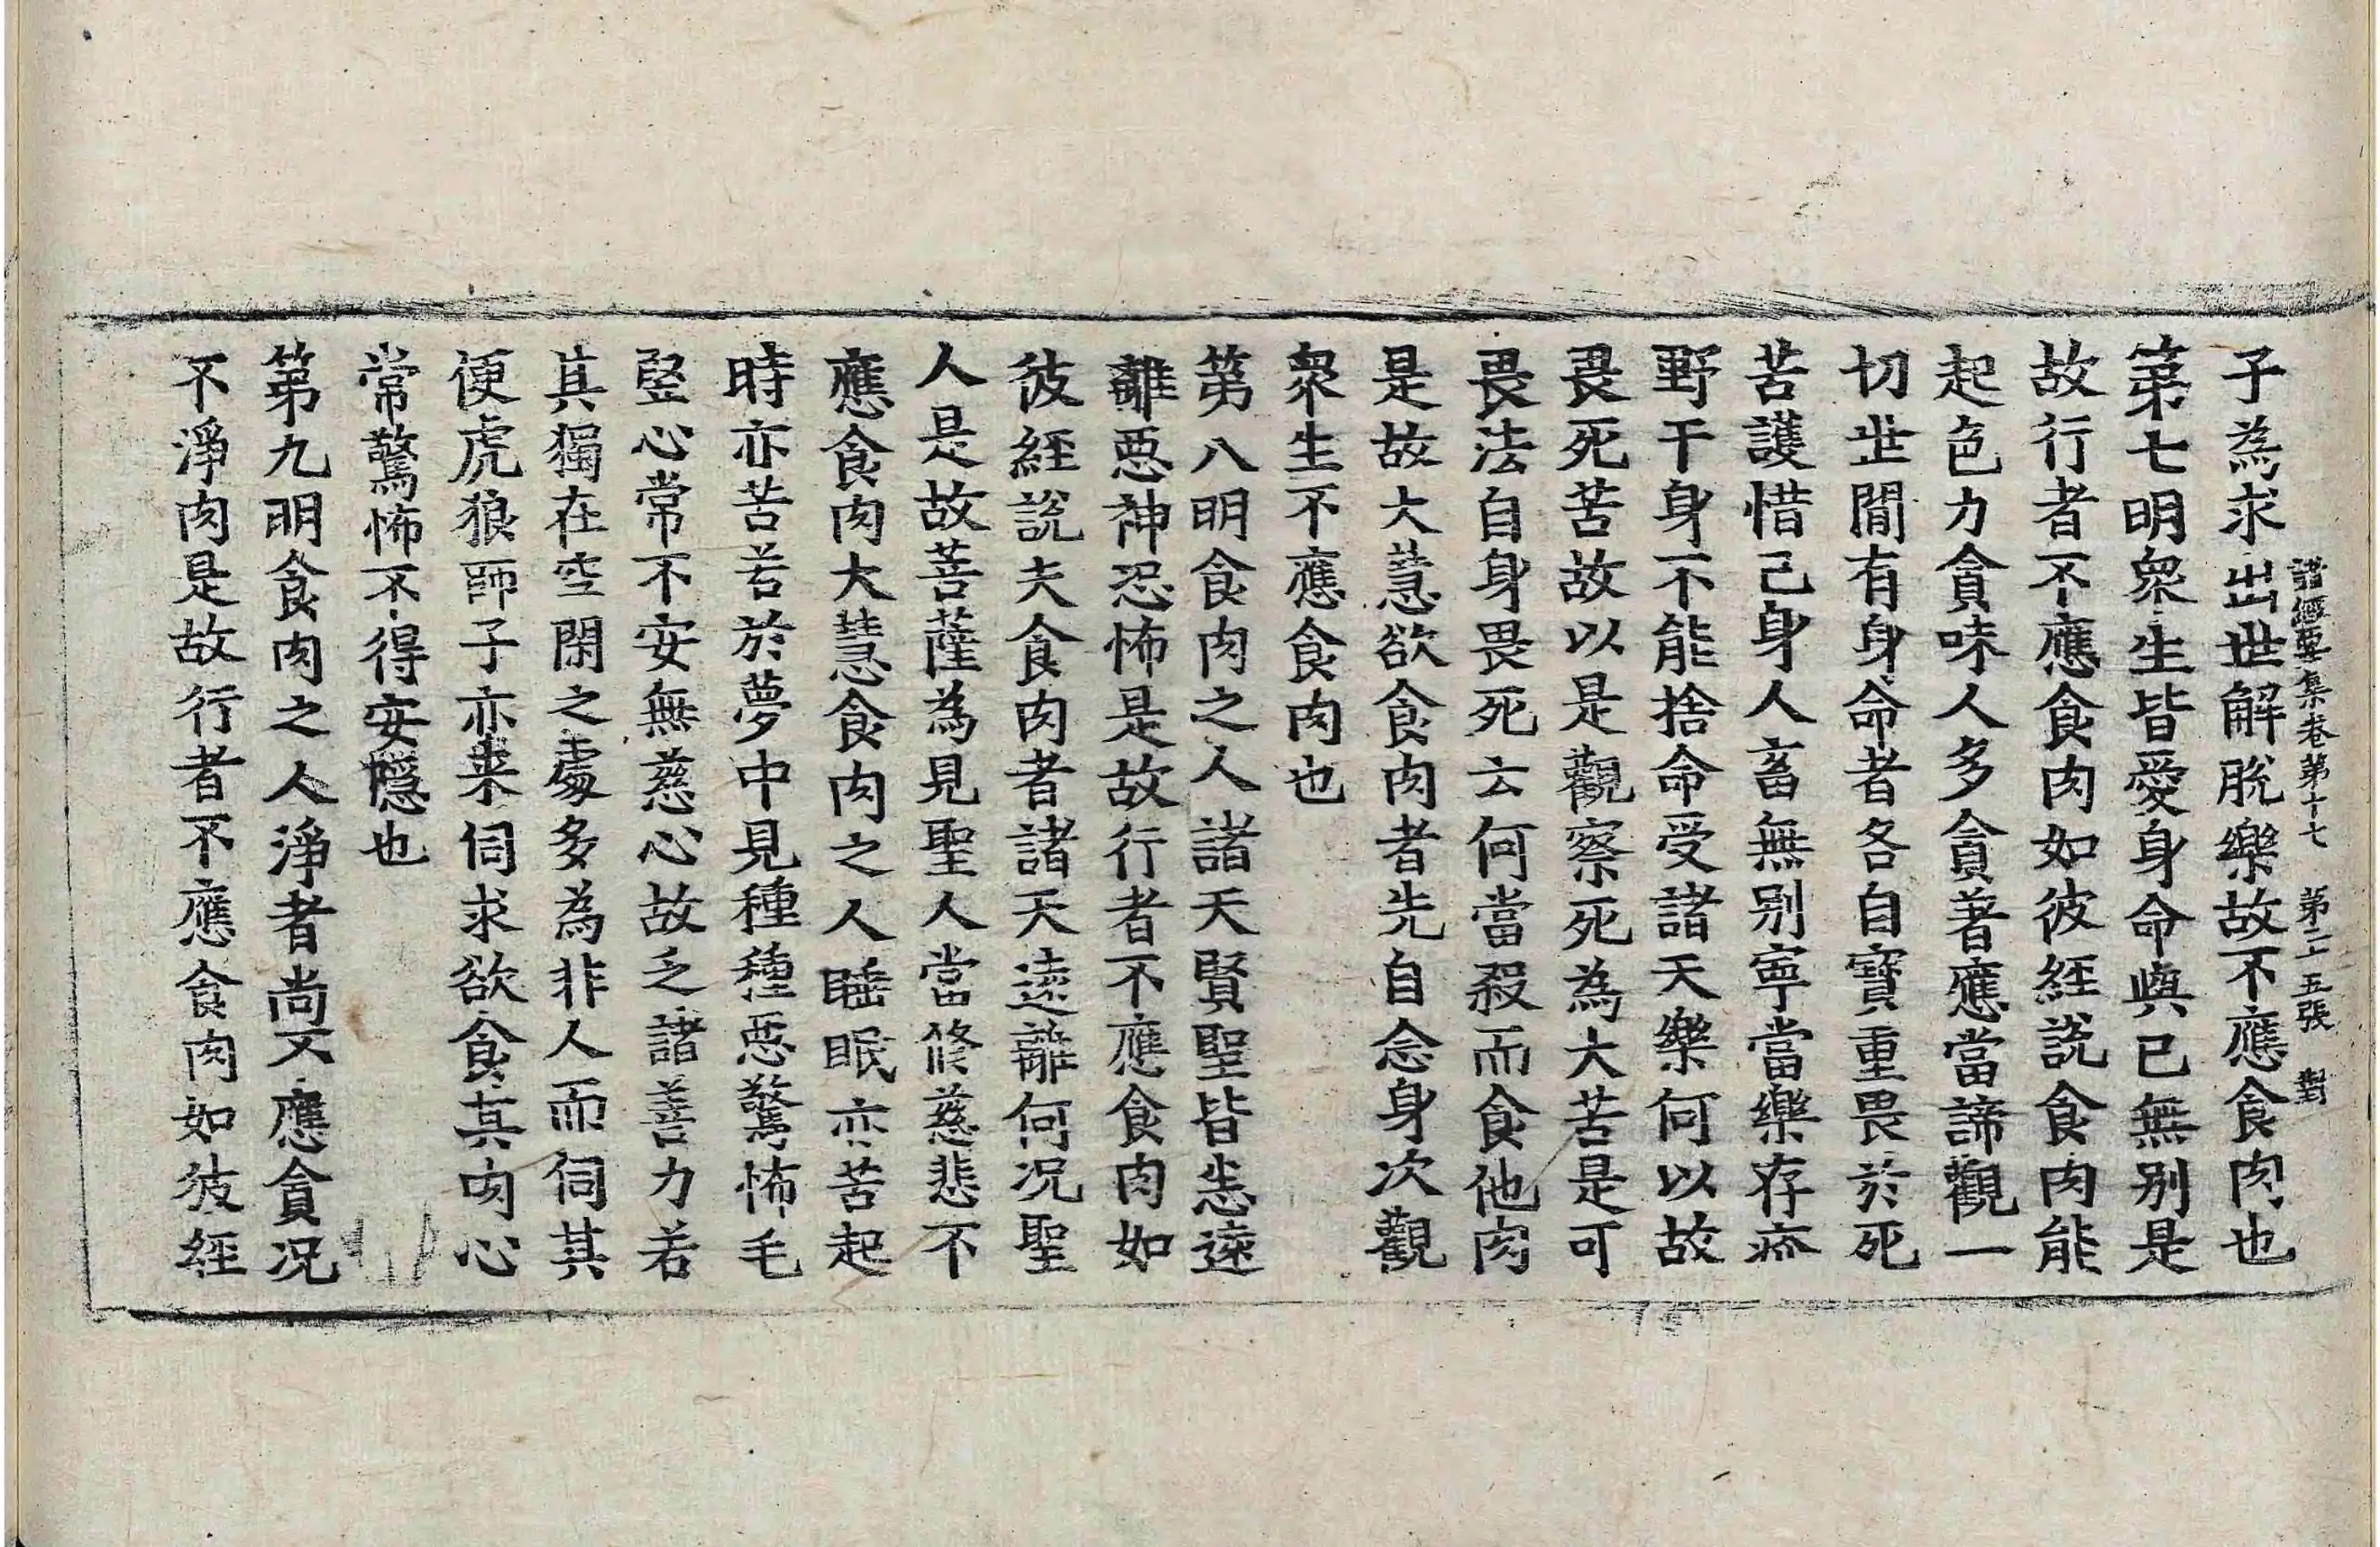 子為求出世解脫樂故不應食肉也
諸經要集卷第十七 第二五張 對
第七明衆生皆愛身命與己無別是
故行者不應食肉如彼經說食肉能
起色力貪味人多貪著應當諦觀一
切世間有身命者各自寶重畏於死
苦護惜己身人畜無別寧當樂存疥
野干身不能捨命受諸天樂何以故
畏死苦故以是觀察死為大苦是可
畏法自身畏死云何當殺而食他肉
是故大慧欲食肉者先自念身次觀
衆生不應食肉也
第八明食肉之人諸天賢聖皆悉遠
離惡神恐怖是故行者不應食肉如
彼經說夫食肉者諸天遠離何況聖
人是故菩薩為見聖人當修慈悲不
應食肉大慧食肉之人睡眠亦苦起
時亦苦若於夢中見種種惡驚怖毛
竪心常不安無慈心故乏諸善力若
其獨在空閑之處多為非人而伺其
便虎狼師子亦来伺求欲食其肉心
常驚怖不得安隱也
第九明食肉之人淨者尚不應貪況
不淨肉是故行者不應食肉如彼經